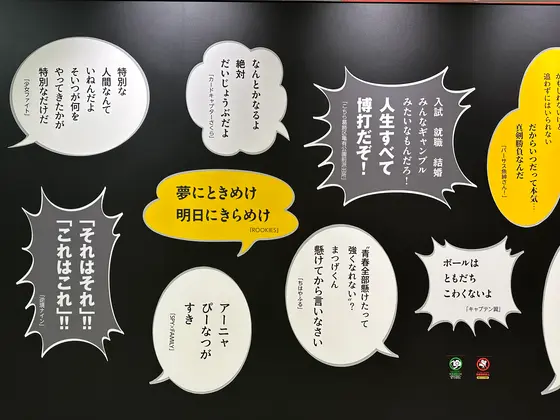 特別な
人間なんて
いねんだよ
そいつが何を
やってきたかが
特別なだけだ
「少女ファイト」
なんとかなるよ
絶対
だいじょうぶだよ
「カードキャプターさくら」
入試 就職 結婚
みんなギャンブル
みたいなもんだろ!
人生すべて
博打だぞ!
「こちら葛飾区亀有公園前派出所」
追わずにはいられない
だからいつだって本気…
真剣勝負なんだ
「バーサス魚紳さん!」
「それはそれ」!!
「これはこれ」!!
「逆境ナイン」
夢にときめけ
明日にきらめけ
「ROOKIES」
アーニャ
ぴーなつが
すき
「SPY×FAMILY」
"青春全部懸けたって
強くなれない"?
まつげくん
懸けてから言いなさい
「ちはやふる」
ボールは
ともだち
こわくないよ
「キャプテン翼」